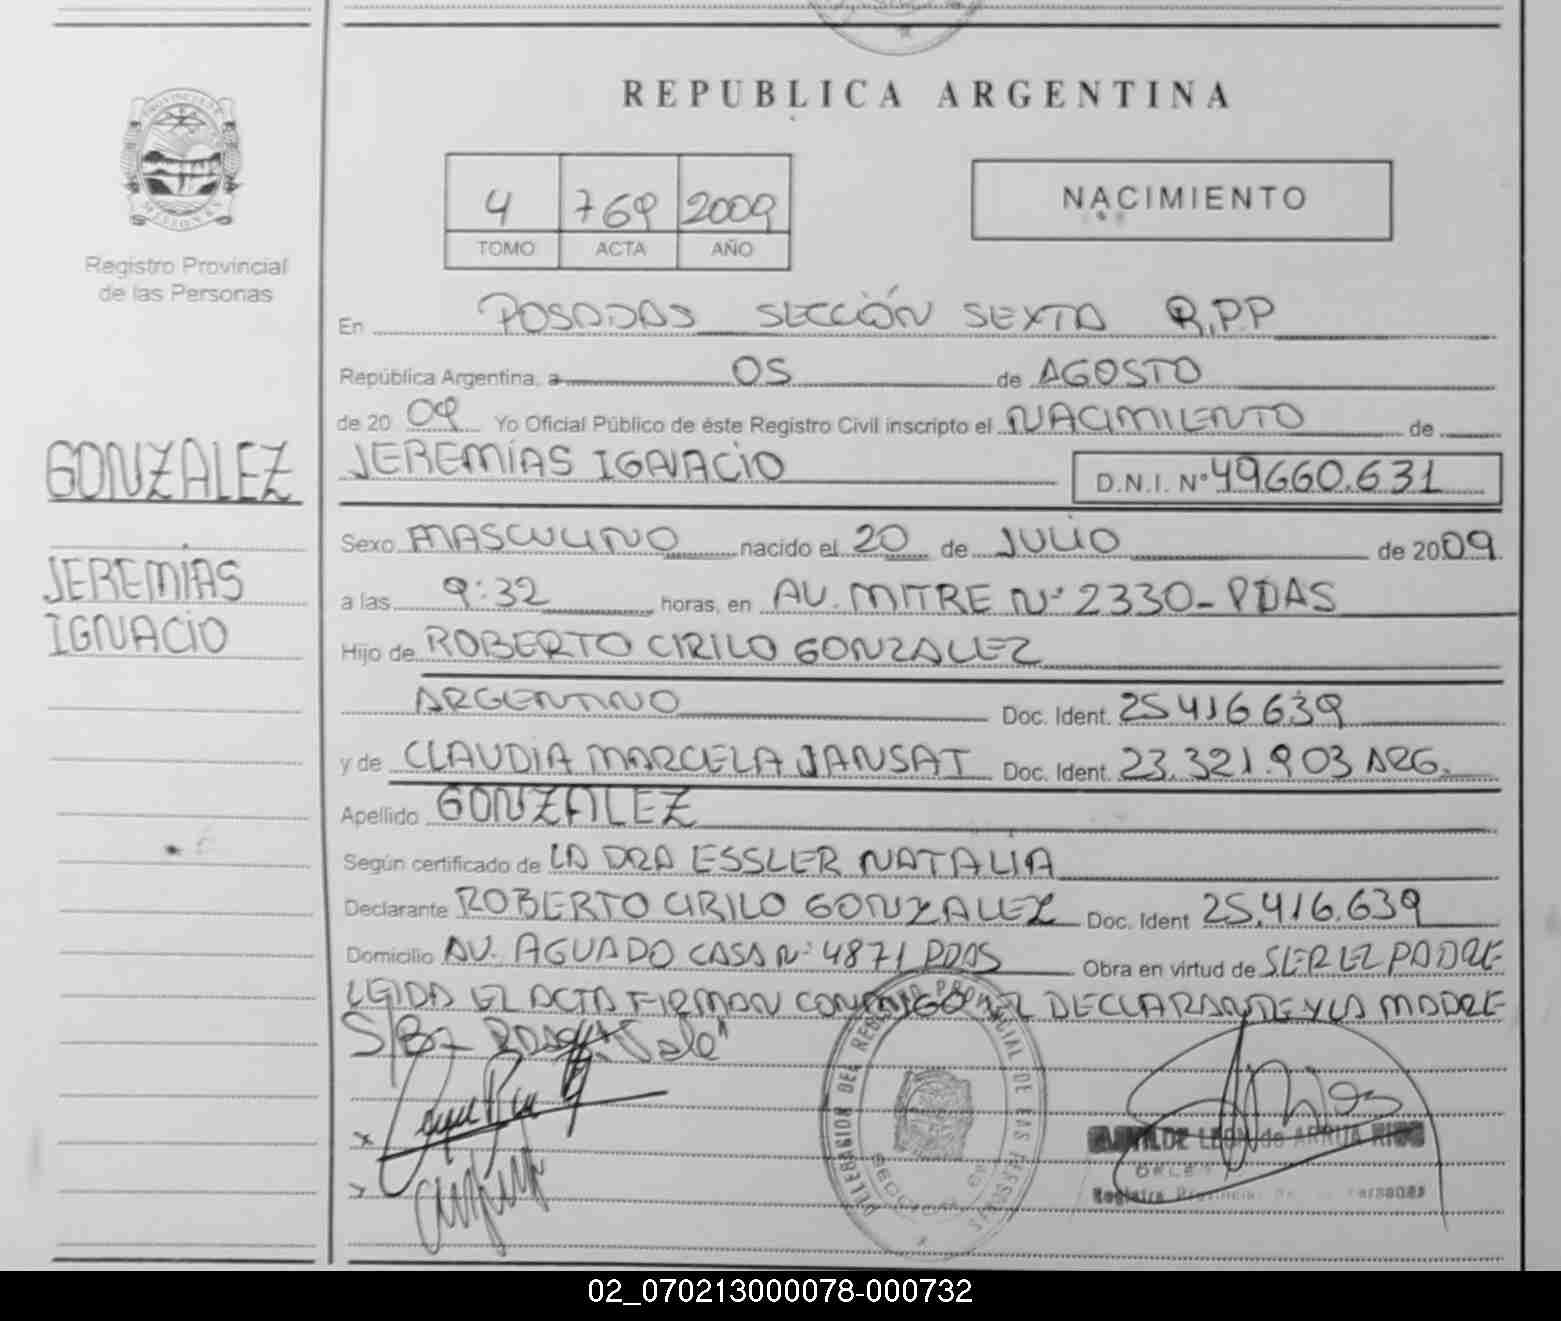 REPUBLICA ARGENTINA
PROVINCIA DE
MISIONES
Registro Provincial
de las Personas
4 769 2009
TOMO ACTA AÑO
NACIMIENTO
En POSADAS SECCIÓN SEXTA R.P.P
República Argentina, a 05 de AGOSTO
de 20 09 Yo Oficial Público de éste Registro Civil inscripto el NACIMIENTO de
GONZALEZ
JEREMÍAS IGNACIO D.N.I. Nº 49660.631
Sexo MASCULINO nacido el 20 de JULIO de 2009
JEREMÍAS
a las 9:32 horas, en AV. MITRE Nº 2330-PDAS
IGNACIO
Hijo de ROBERTO CIRILO GONZALEZ
ARGENTINO Doc. Ident. 25416639
y de CLAUDIA MARCELA JANSAT Doc. Ident. 23.321.903 ARG.
Apellido GONZALEZ
Según certificado de LA DRA ESSLER NATALIA
Declarante ROBERTO CIRILO GONZALEZ Doc. Ident 25.416.639
Domicilio AV. AGUADO CASA Nº 4871 PDAS Obra en virtud de SER EL PADRE
LEIDA EL ACTA FIRMAN CONMIGO EL DECLARANTE Y LA MADRE
DELEGACION DEL REGISTRO PROVINCIAL DE LAS PERSONAS
SECCION
LEON de ARRUA RIOS
Registro Provincial de las Personas
02_070213000078-000732